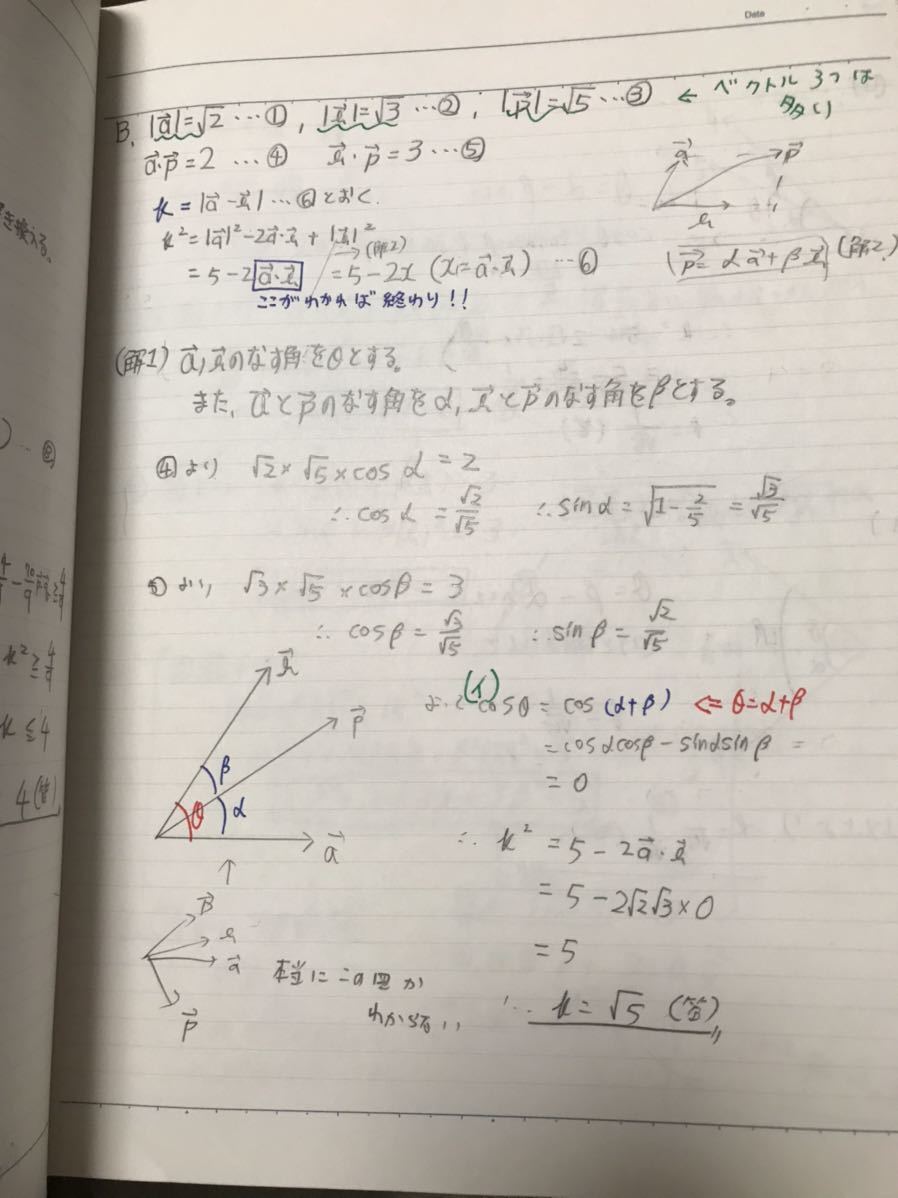 Date
B. |a⃗|=√2 …①, |x⃗|=√3 …②, |p⃗|=√5 …③ ← ベクトル3つは
多い
a⃗・p⃗=2 …④ x⃗・p⃗=3 …⑤
a⃗ p⃗
k=|a⃗-x⃗| …⑥とおく.
k²=|a⃗|²-2a⃗・x⃗+|x⃗|²
→(解2)
=5-2a⃗・x⃗ =5-2x (x=a⃗・x⃗) …⑥
p⃗=αa⃗+βx⃗ (解2)
ここがわかれば終わり!!
(解1) a⃗,x⃗のなす角をθとする。
また、a⃗とp⃗のなす角をα,x⃗とp⃗のなす角をβとする。
④より √2×√5×cosα=2
∴cosα=√2/√5 ∴sinα=√(1-2/5)=√3/√5
⑤より √3×√5×cosβ=3
∴cosβ=√3/√5 ∴sinβ=√2/√5
x⃗
(イ)
よって cosθ=cos(α+β) ⇐ θ=α+β
p⃗
=cosαcosβ-sinαsinβ =
β
θ α
=0
a⃗
∴k²=5-2a⃗・x⃗
=5-2√2√3×0
=5
a⃗
p⃗
本当にこの図か
わからない
∴k=√5 (答)
き換える。
… ⑧
k²≧4/9
k≦4
4(答)